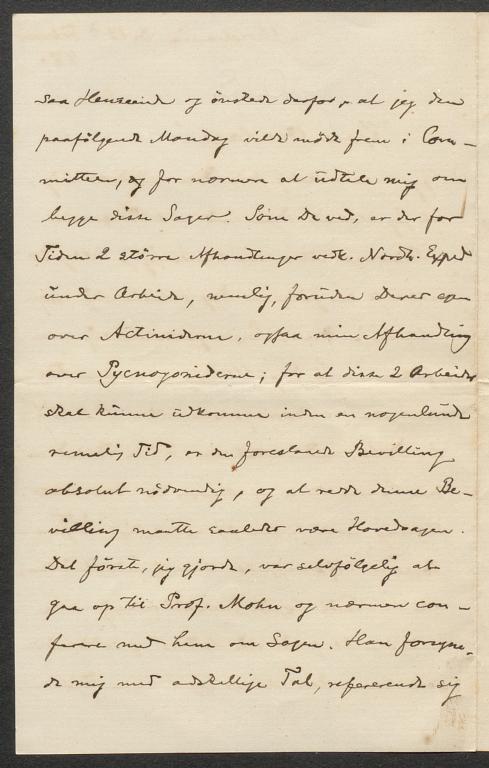 saa Henseende og ønskede derfor, at jeg den
paafølgende Mandag vilde møde frem i Com-
mitteen, og for nærmere at udtale mig om
begge disse Sager. Som De ved, er der for
Tiden 2 større Afhandlinger vedk. Nordh. Exped
under Arbeide, nemlig, foruden Deres egen
over Actiniderne, ogsaa min Afhandling
over Pycnogoniderne; for at disse 2 Arbeider
skal kunne udkomme inden en nogenlunde
rimelig Tid, er den foreslaaede Bevilling
absolut nødvendig, og at redde denne Be-
villing maatte saaledes være Hovedsagen.
Det første, jeg gjorde, var selvfølgelig at
gaa op til Prof. Mohn og nærmere con-
ferere med ham om Sagen. Han forsyne-
de mig med adskillige Tal, refererende sig